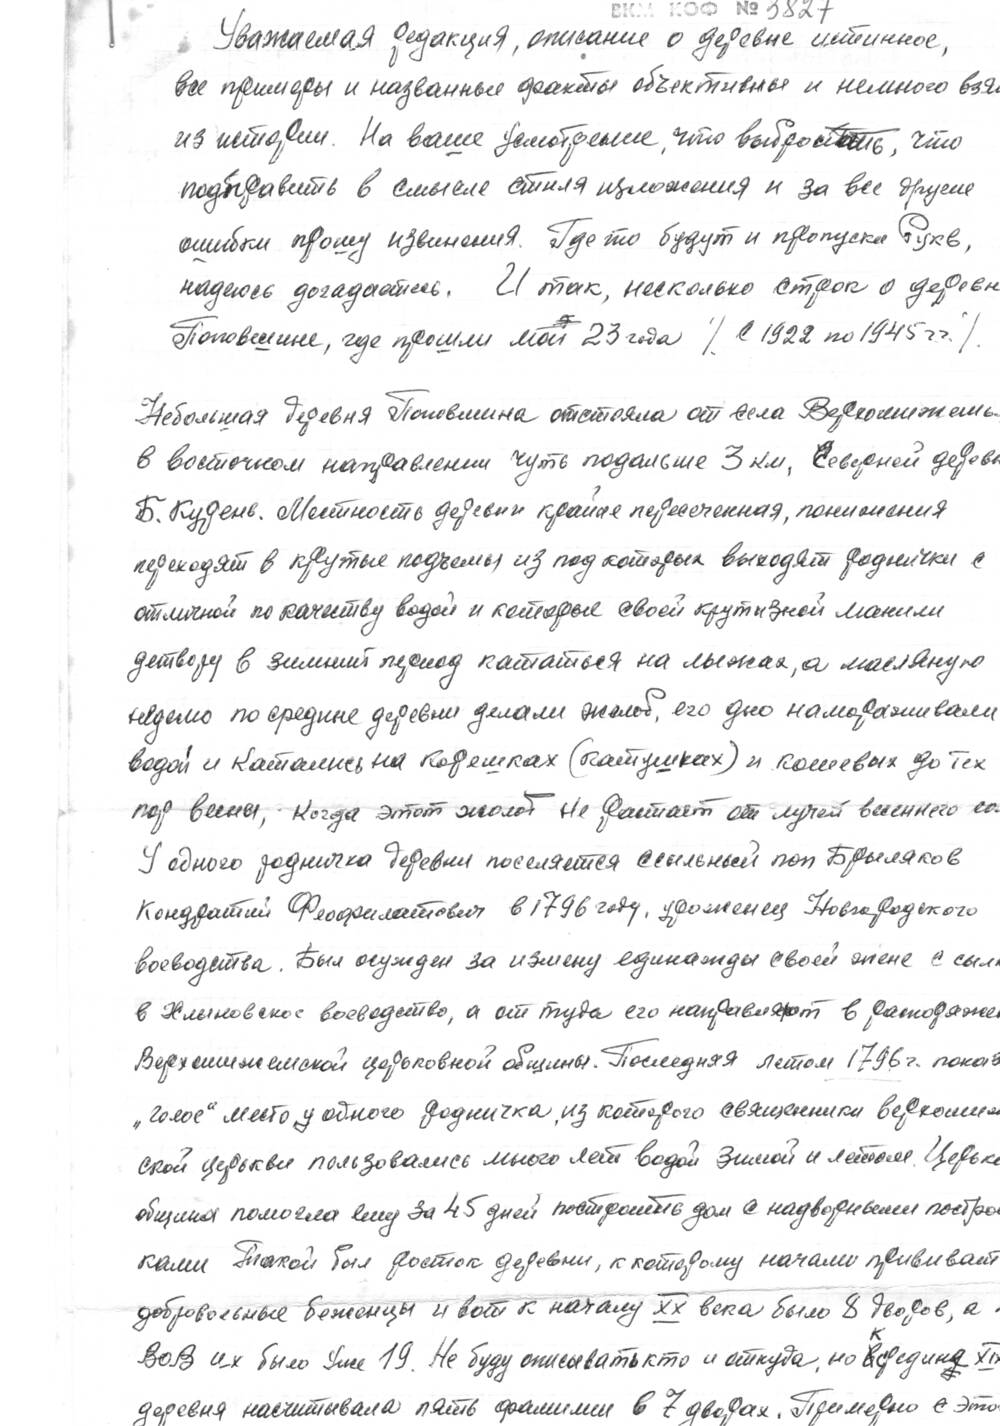 ВКМ КОФ № 3827
Уважаемая редакция, описание о деревне истинное,
все примеры и названные факты объективные и немного взя
из истории. На ваше усмотрение, что выбросить, что
подправить в смысле стиля изложения и за все другие
ошибки прошу извинения. Где то будут и пропуски букв,
надеюсь догадаетесь. И так, несколько строк о деревн
Поповшине, где прошли мои 23 года /с 1922 по 1945 г.г./.
Небольшая деревня Поповшина отстояла от села Верхошижемь
в восточном направлении чуть подальше 3 км, Северней деревн
Б. Кудены. Местность деревни крайне пересеченная, понижения
переходят в крутые подъемы из под которых выходят роднички с
отличной по качеству водой и которые своей крутизной манили
детвору в зимний период кататься на лыжах, а масляную
неделю по средине деревни делали жолоб, его дно намораживали
водой и катались на корешках (катушках) и кошевых до тех
пор весны, когда этот жолоб не растает от лучей весеннего со
У одного родничка деревни поселяется ссыльный поп Брыляков
Кондратий Феофилатович в 1796 году, уроженец Новгородского
воеводства. Был осужден за измену единажды своей жене с ссыл
в Хлыновское воеводство, а от туда его направляют в распоряжен
Верхошижемской церковной общины. Последняя летом 1796 г. показ
„голое" место у одного родничка, из которого священники верхошиж
ской церькви пользовались много лет водой зимой и летом. Церьков
община помогла ему за 45 дней построить дом с надворными постро
ками Такой был росток деревни, к которому начали прививат
добровольные беженцы и вот к началу XX века было 8 дворов, а
ВОВ их было уже 19. Не буду описывать кто и откуда, но к средине XIX
деревня насчитывала пять фамилий в 7 дворах. Примерно с это